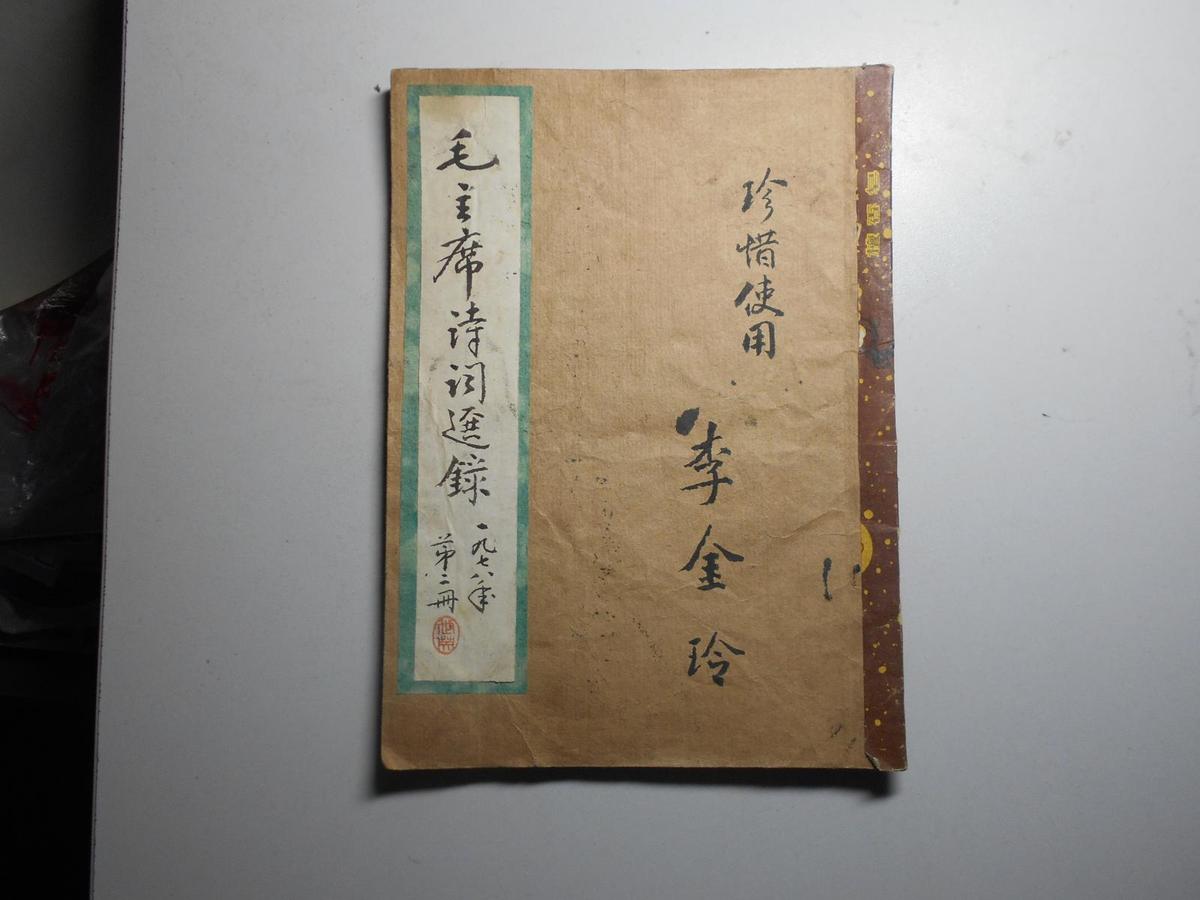 珍惜使用
李金玲
毛主席诗词選録
一九七八年
第二冊